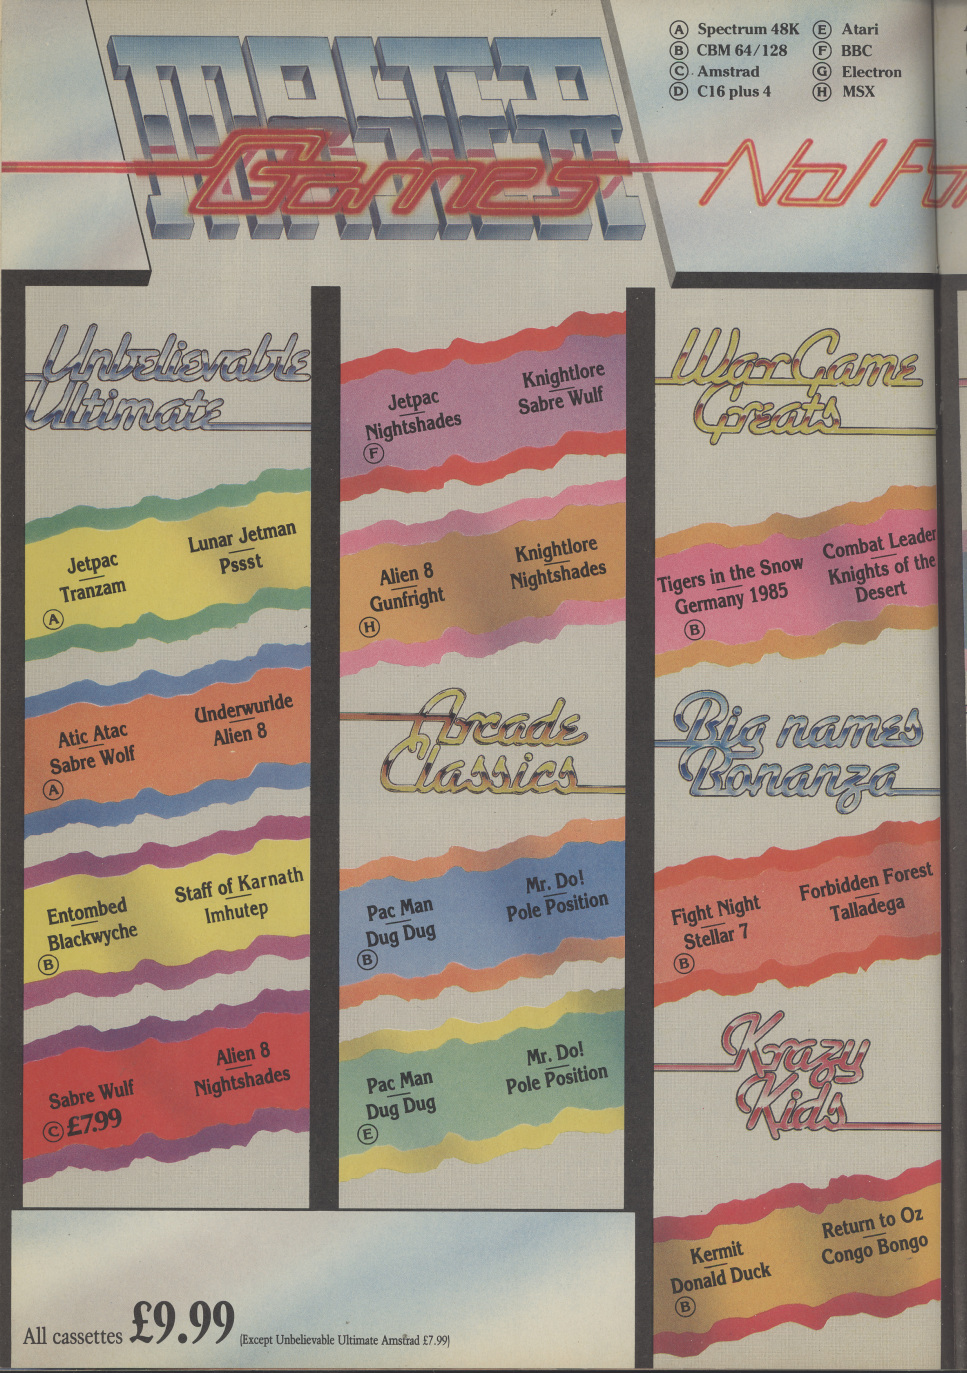 Ⓐ Spectrum 48K Ⓔ Atari
Ⓑ CBM 64/128 Ⓕ BBC
Ⓒ Amstrad Ⓖ Electron
Ⓓ C16 plus 4 Ⓗ MSX
Games
No1
Unbelievable
Ultimate
Jetpac
Tranzam
Lunar Jetman
Pssst
Ⓐ
Atic Atac
Sabre Wolf
Underwurlde
Alien 8
Ⓐ
Entombed
Blackwyche
Staff of Karnath
Imhutep
Ⓑ
Sabre Wulf
Alien 8
Nightshades
Ⓒ £7.99
Jetpac
Nightshades
Knightlore
Sabre Wulf
Ⓕ
Alien 8
Gunfright
Knightlore
Nightshades
Ⓗ
Arcade
Classics
Pac Man
Dug Dug
Mr. Do!
Pole Position
Ⓑ
Pac Man
Dug Dug
Mr. Do!
Pole Position
Ⓔ
War Game
Greats
Tigers in the Snow
Germany 1985
Combat Leader
Knights of the
Desert
Ⓑ
Big names
Bonanza
Fight Night
Stellar 7
Forbidden Forest
Talladega
Ⓑ
Krazy
Kids
Kermit
Donald Duck
Return to Oz
Congo Bongo
Ⓑ
All cassettes £9.99 (Except Unbelievable Ultimate Amstrad £7.99)